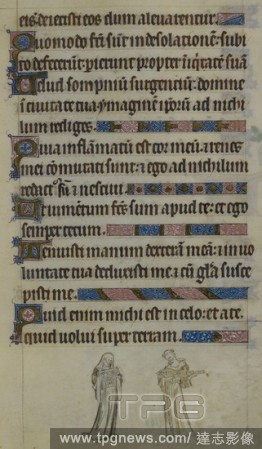 eis deiecisti eos dum alevarentur.
Quomodo fc̄i sūt in desolationē: subi
to defecerūt: perierunt propter iniq̄tatē suā
Velud sompniū surgentiū: domine
i civitate tua ymaginē ipōrū ad nichi
lum rediges.
Quia inflāmatū est cor meū: et renes
mei cōmutati sunt: et ego ad nichilum
redactᵘ sū et nescivi.
Ut iumētum fc̄s sum apud te: et ego
semper tecum.
Tenuisti manum dexterā meā: et in vo
luntate tua deduxisti me: et cū gl̄a susce
pisti me.
Quid enim michi est in celo: et a te
quid volui super terram.
TPG
www.tpgnews.com/ 達志影像